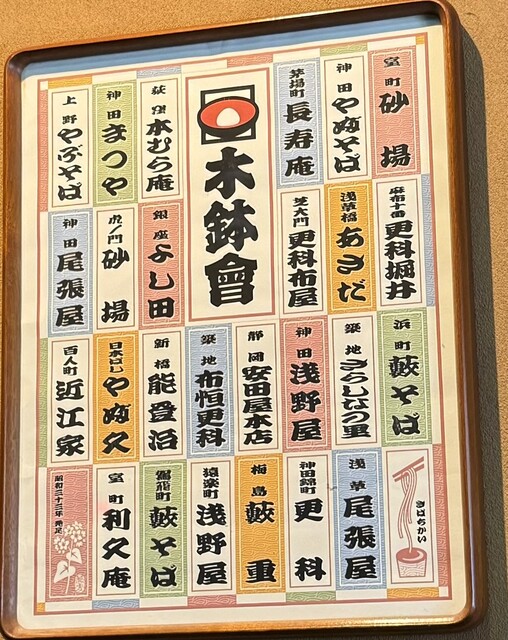 室町 砂場
神田 やぶそば
茅場町 長寿庵
木鉢會
荻窪 本むら庵
神田 まつや
上野 やぶそば
麻布十番 更科堀井
浅草橋 あさだ
芝大門 更科布屋
銀座 よし田
虎ノ門 砂場
神田 尾張屋
浜町 藪そば
築地 さらしなの里
神田 浅野屋
静岡 安田屋本店
築地 布恒更科
新橋 能登治
日本ばし やぶ久
百人町 近江家
きばちかい
浅草 尾張屋
神田錦町 更科
梅島 藪重
猿楽町 浅野屋
藪そば
室町 利久庵
昭和二十三年 発足